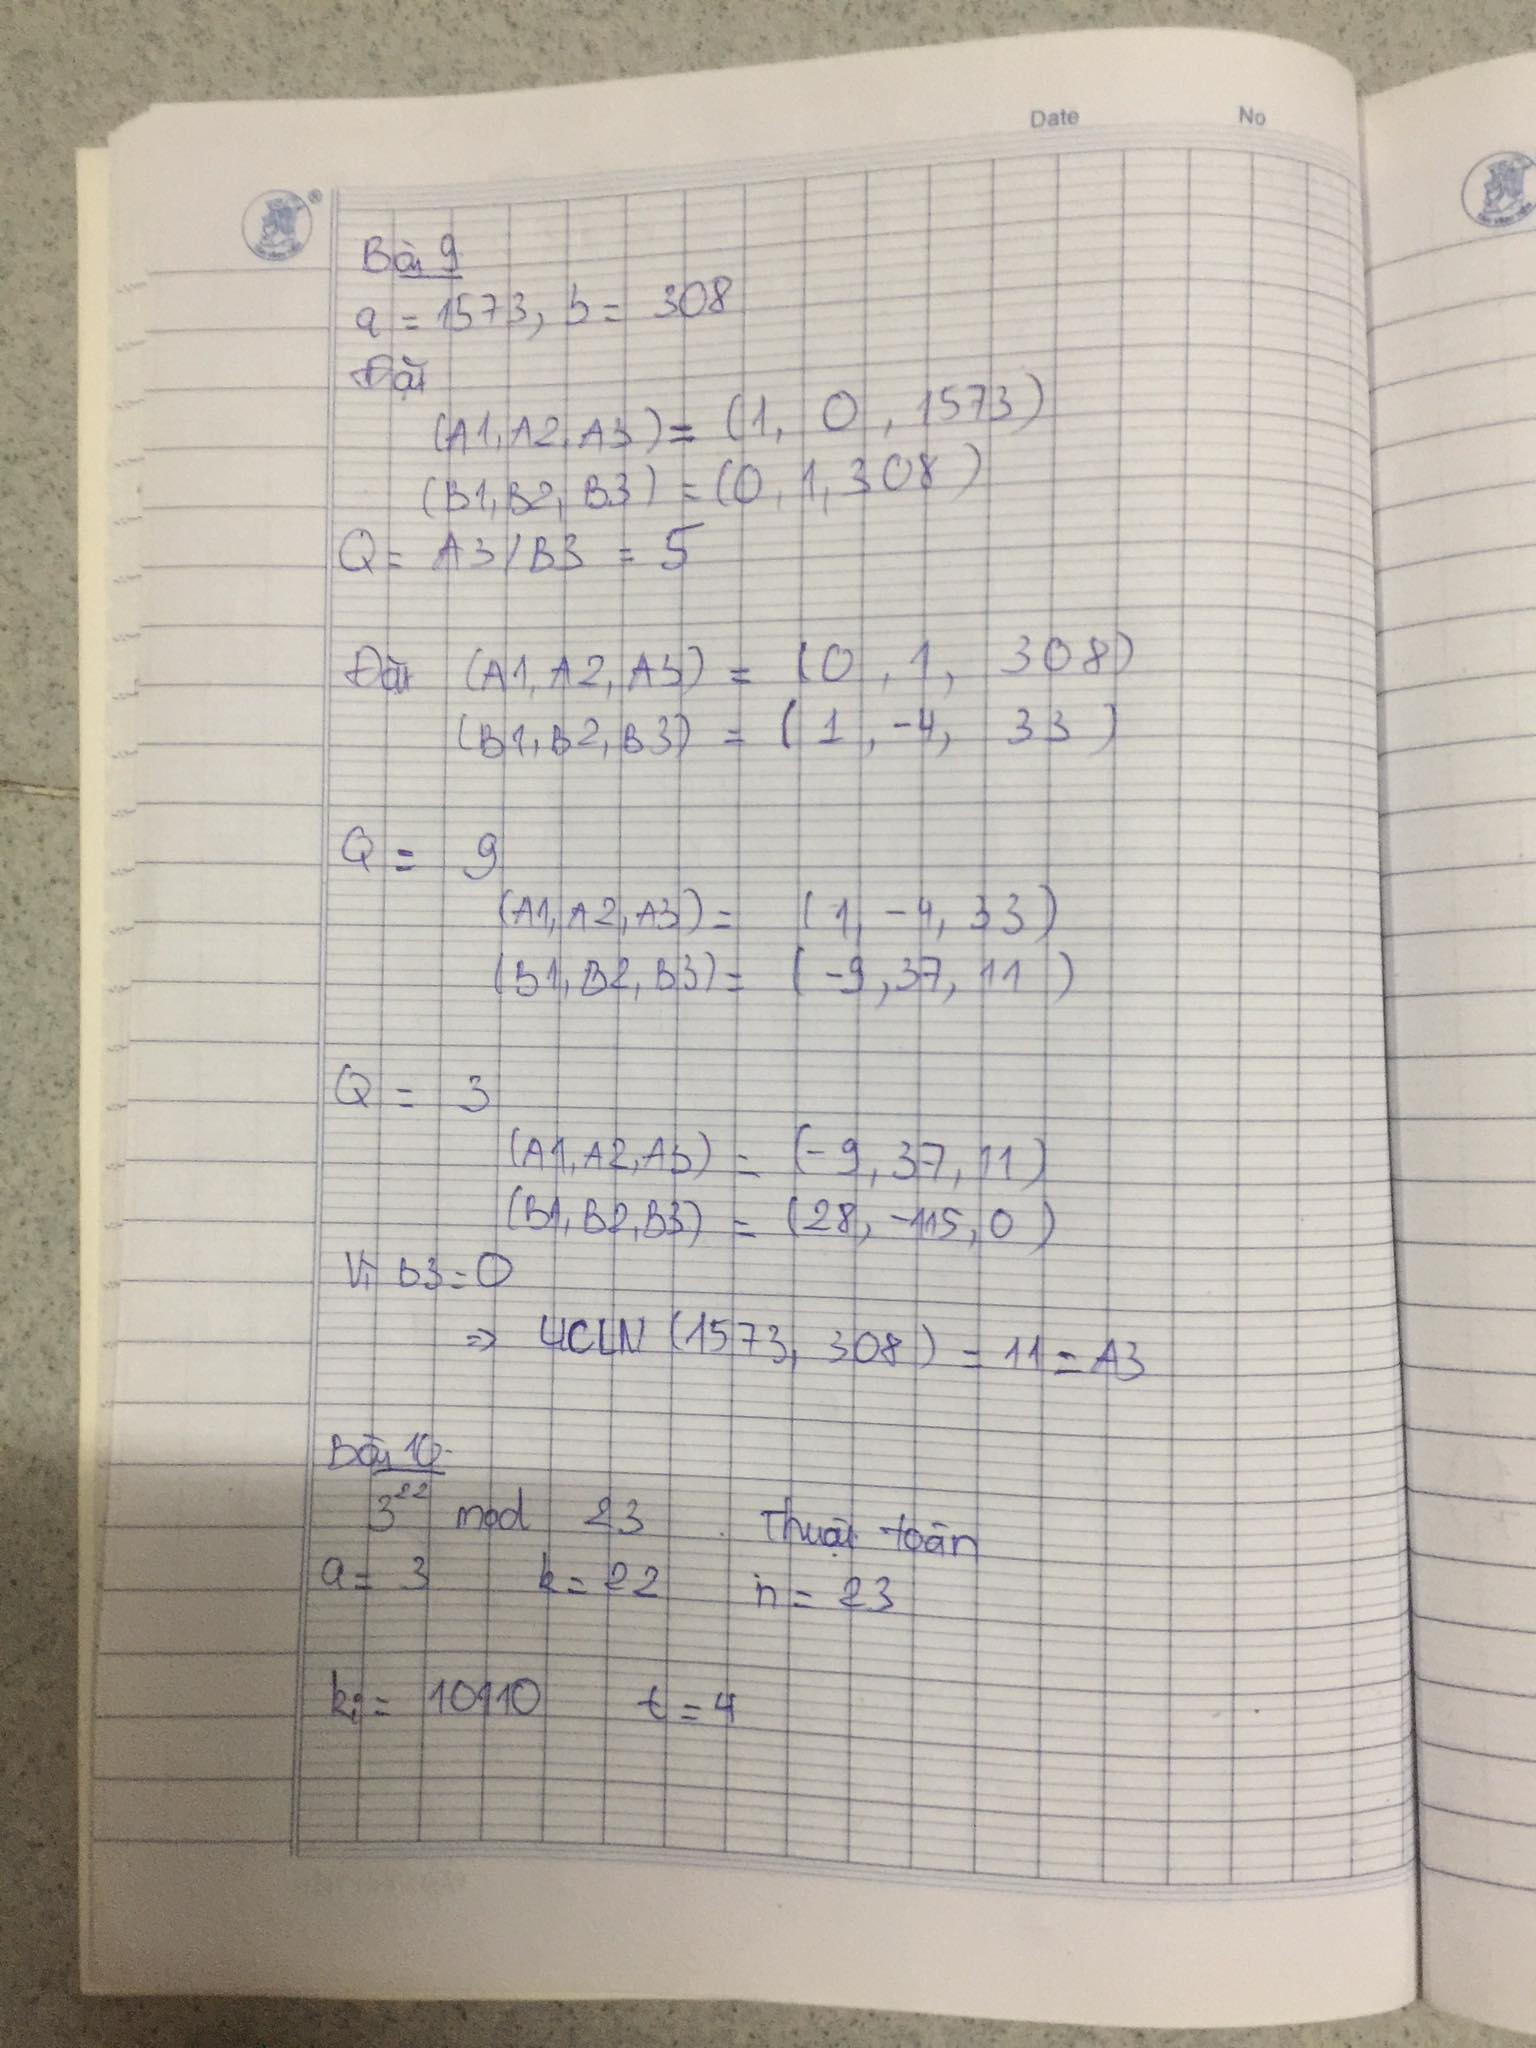 Date No
Bài 9
a = 1573, b = 308
Đặt
(A1, A2, A3) = (1, 0, 1573)
(B1, B2, B3) = (0, 1, 308)
Q = A3/B3 = 5
Đặt (A1, A2, A3) = (0, 1, 308)
(B1, B2, B3) = (1, -4, 33)
Q = 9
(A1, A2, A3) = (1, -4, 33)
(B1, B2, B3) = (-9, 37, 11)
Q = 3
(A1, A2, A3) = (-9, 37, 11)
(B1, B2, B3) = (28, -115, 0)
Vì B3 = 0
=> ƯCLN (1573, 308) = 11 = A3
Bài 10
3²² mod 23 Thuật toán
a = 3 k = 22 n = 23
ki = 10110 t = 4